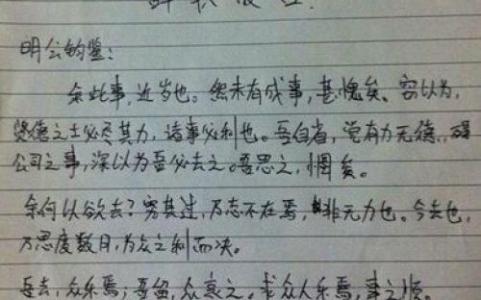 辞职报告
明公钧鉴:
余此事,近岁也。然未有成事,甚愧矣。窃以为,
贤德之士必尽其力,诸事必利也。吾自省,觉有力无德,碍
公司之事,深以为吾必去之。吾思之,惆矣。
余何以欲去?穷其过,乃志不在焉,非无力也。今去也,
乃思度数月,为众之利而决。
吾去,众乐焉;吾留,众哀之。求众人乐焉,事之顺